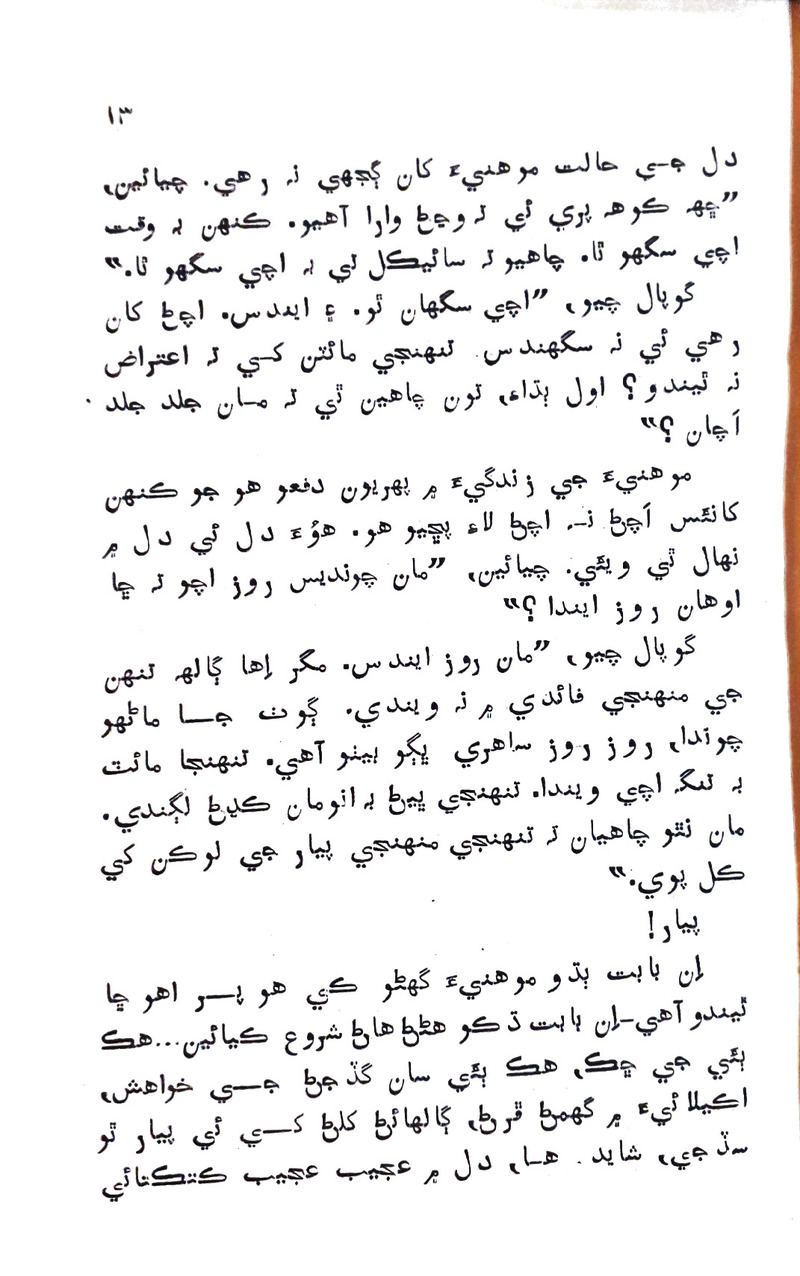 ١٣
دل جي حالت موهنيءَ کان ڳجهي نہ رهي. چيائين،
”ڇھ ڪوھ پري ئي تہ وڃڻ وارا آهيو. ڪنهن بہ وقت
اچي سگهو ٿا. چاهيو تہ سائيڪل تي بہ اچي سگهو ٿا.“
گوپال چيو، ”اچي سگهان ٿو. ۽ ايندس. اچڻ کان
رهي ئي نہ سگهندس. تنهنجي مائٽن کي تہ اعتراض
نہ ٿيندو؟ اول ٻڌاءِ، تون چاهين ٿي تہ مان جلد جلد
اَچان ؟“
موهنيءَ جي زندگيءَ ۾ پهريون دفعو هو جو ڪنهن
کانئس اَچڻ نہ اچڻ لاءِ پڇيو هو. هوُءَ دل ئي دل ۾
نهال ٿي ويئي. چيائين، ”مان چونديس روز اچو تہ ڇا
اوهان روز ايندا ؟“
گوپال چيو، ”مان روز ايندس. مگر اِها ڳالھ تنهن
جي منهنجي فائدي ۾ نہ ويندي. ڳوٺ جا ماڻهو
چوندا، روز روز ساهري ڀڳو بيٺو آهي. تنهنجا مائٽ
بہ تنگ اچي ويندا. تنهنجي ڀيڻ بہ انومان ڪڍڻ لڳندي.
مان نٿو چاهيان تہ تنهنجي منهنجي پيار جي لوڪن کي
ڪل پوي.“
پيار!
اِن بابت ٻڌو موهنيءَ گهڻو ڪي هو پر اهو ڇا
ٿيندو آهي-اِن بابت ڌڪو هڻڻ هاڻ شروع ڪيائين...هڪ
ٻئي جي ڇڪ، هڪ ٻئي سان گڏجڻ جي خواهش،
اڪيلائيءَ ۾ گهمڻ ڦرڻ، ڳالهائڻ کلڻ کي ئي پيار ٿو
سڏجي، شايد. ها، دل ۾ عجيب عجيب ڪتڪتائي